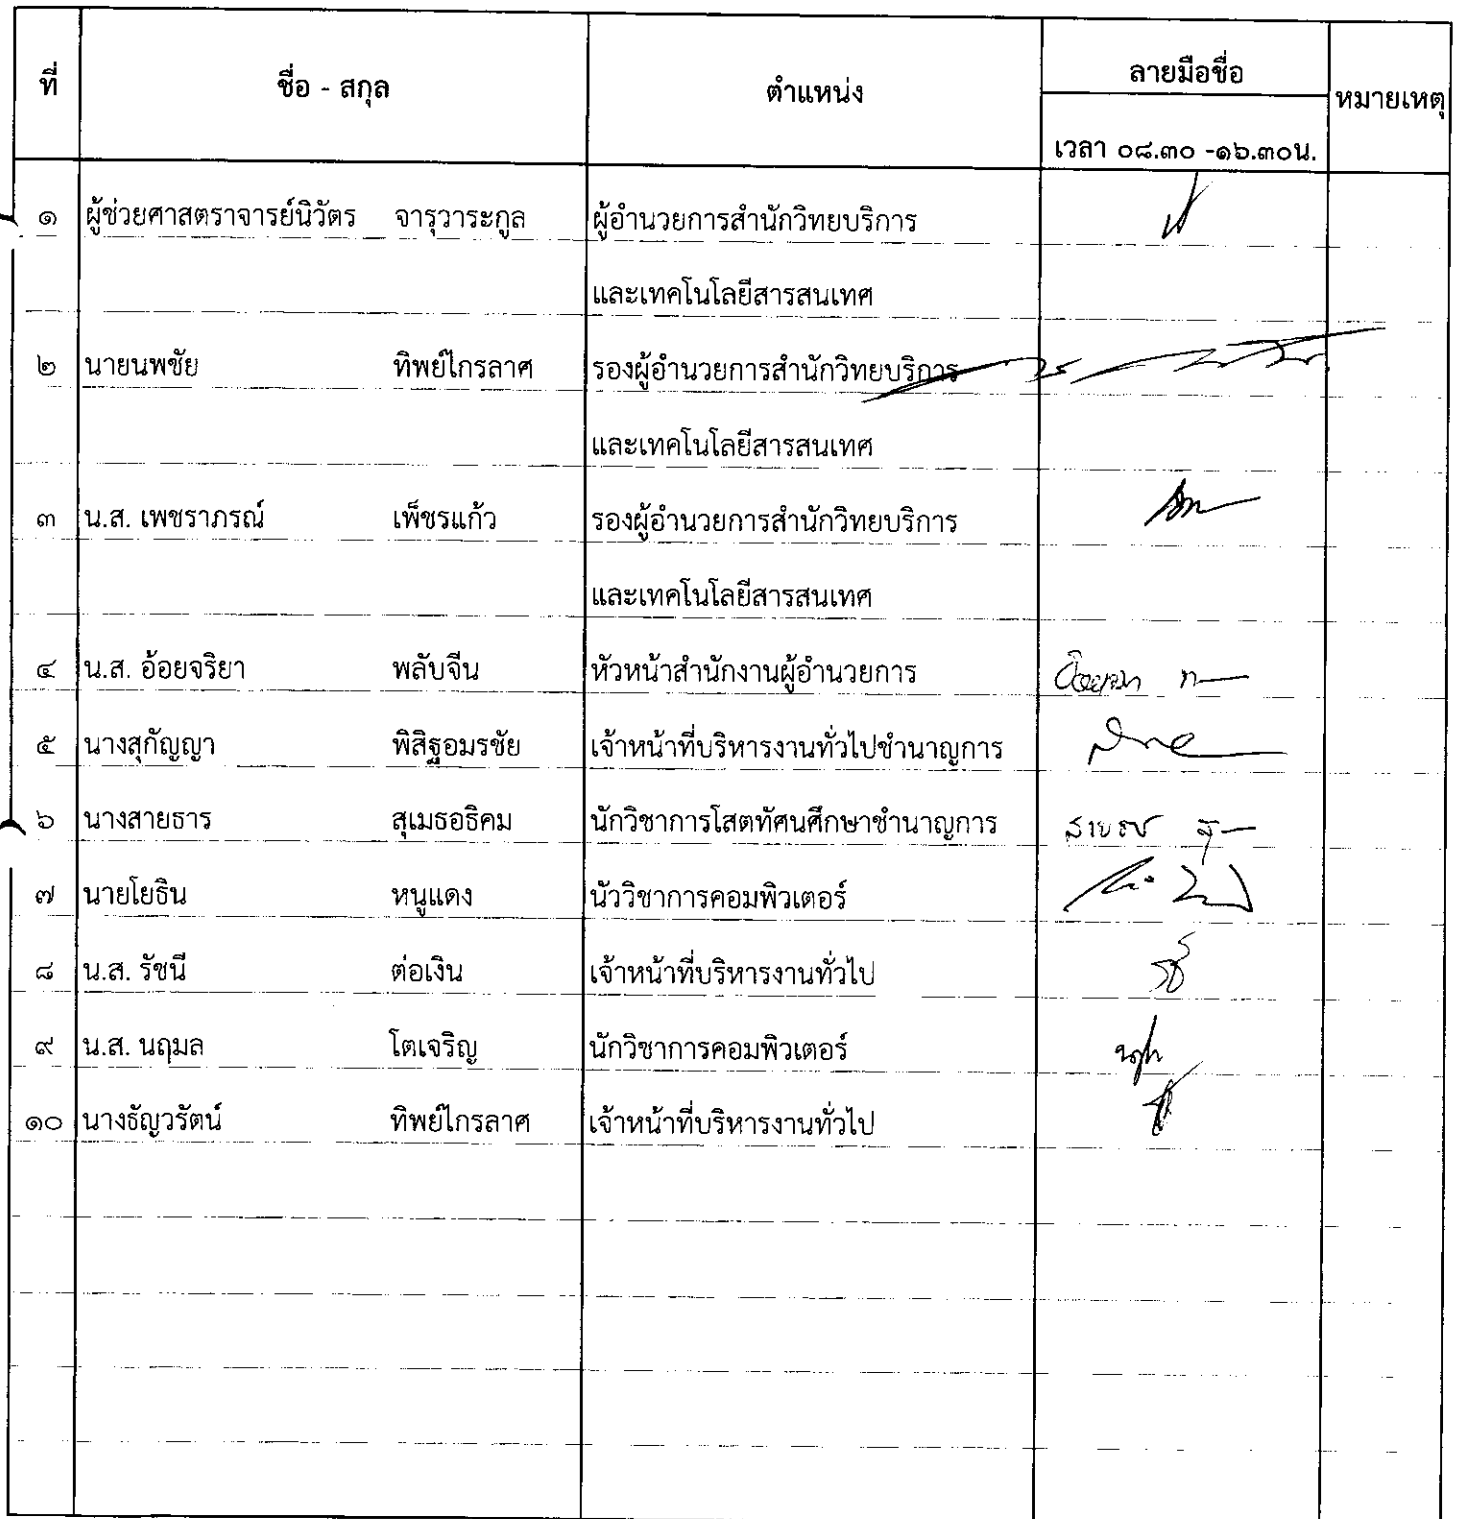 ที่ ชื่อ - สกุล ตำแหน่ง ลายมือชื่อ หมายเหตุ
เวลา ๐๘.๓๐ -๑๖.๓๐น.
๑ ผู้ช่วยศาสตราจารย์นิวัตร จารุวาระกูล ผู้อำนวยการสำนักวิทยบริการ
และเทคโนโลยีสารสนเทศ
๒ นายนพชัย ทิพย์ไกรลาศ รองผู้อำนวยการสำนักวิทยบริการ
และเทคโนโลยีสารสนเทศ
๓ น.ส. เพชราภรณ์ เพ็ชรแก้ว รองผู้อำนวยการสำนักวิทยบริการ
และเทคโนโลยีสารสนเทศ
๔ น.ส. อ้อยจริยา พลับจีน หัวหน้าสำนักงานผู้อำนวยการ
๕ นางสุกัญญา พิสิฐอมรชัย เจ้าหน้าที่บริหารงานทั่วไปชำนาญการ
๖ นางสายธาร สุเมธอธิคม นักวิชาการโสตทัศนศึกษาชำนาญการ
๗ นายโยธิน หนูแดง นัววิชาการคอมพิวเตอร์
๘ น.ส. รัชนี ต่อเงิน เจ้าหน้าที่บริหารงานทั่วไป
๙ น.ส. นฤมล โตเจริญ นักวิชาการคอมพิวเตอร์
๑๐ นางธัญวรัตน์ ทิพย์ไกรลาศ เจ้าหน้าที่บริหารงานทั่วไป